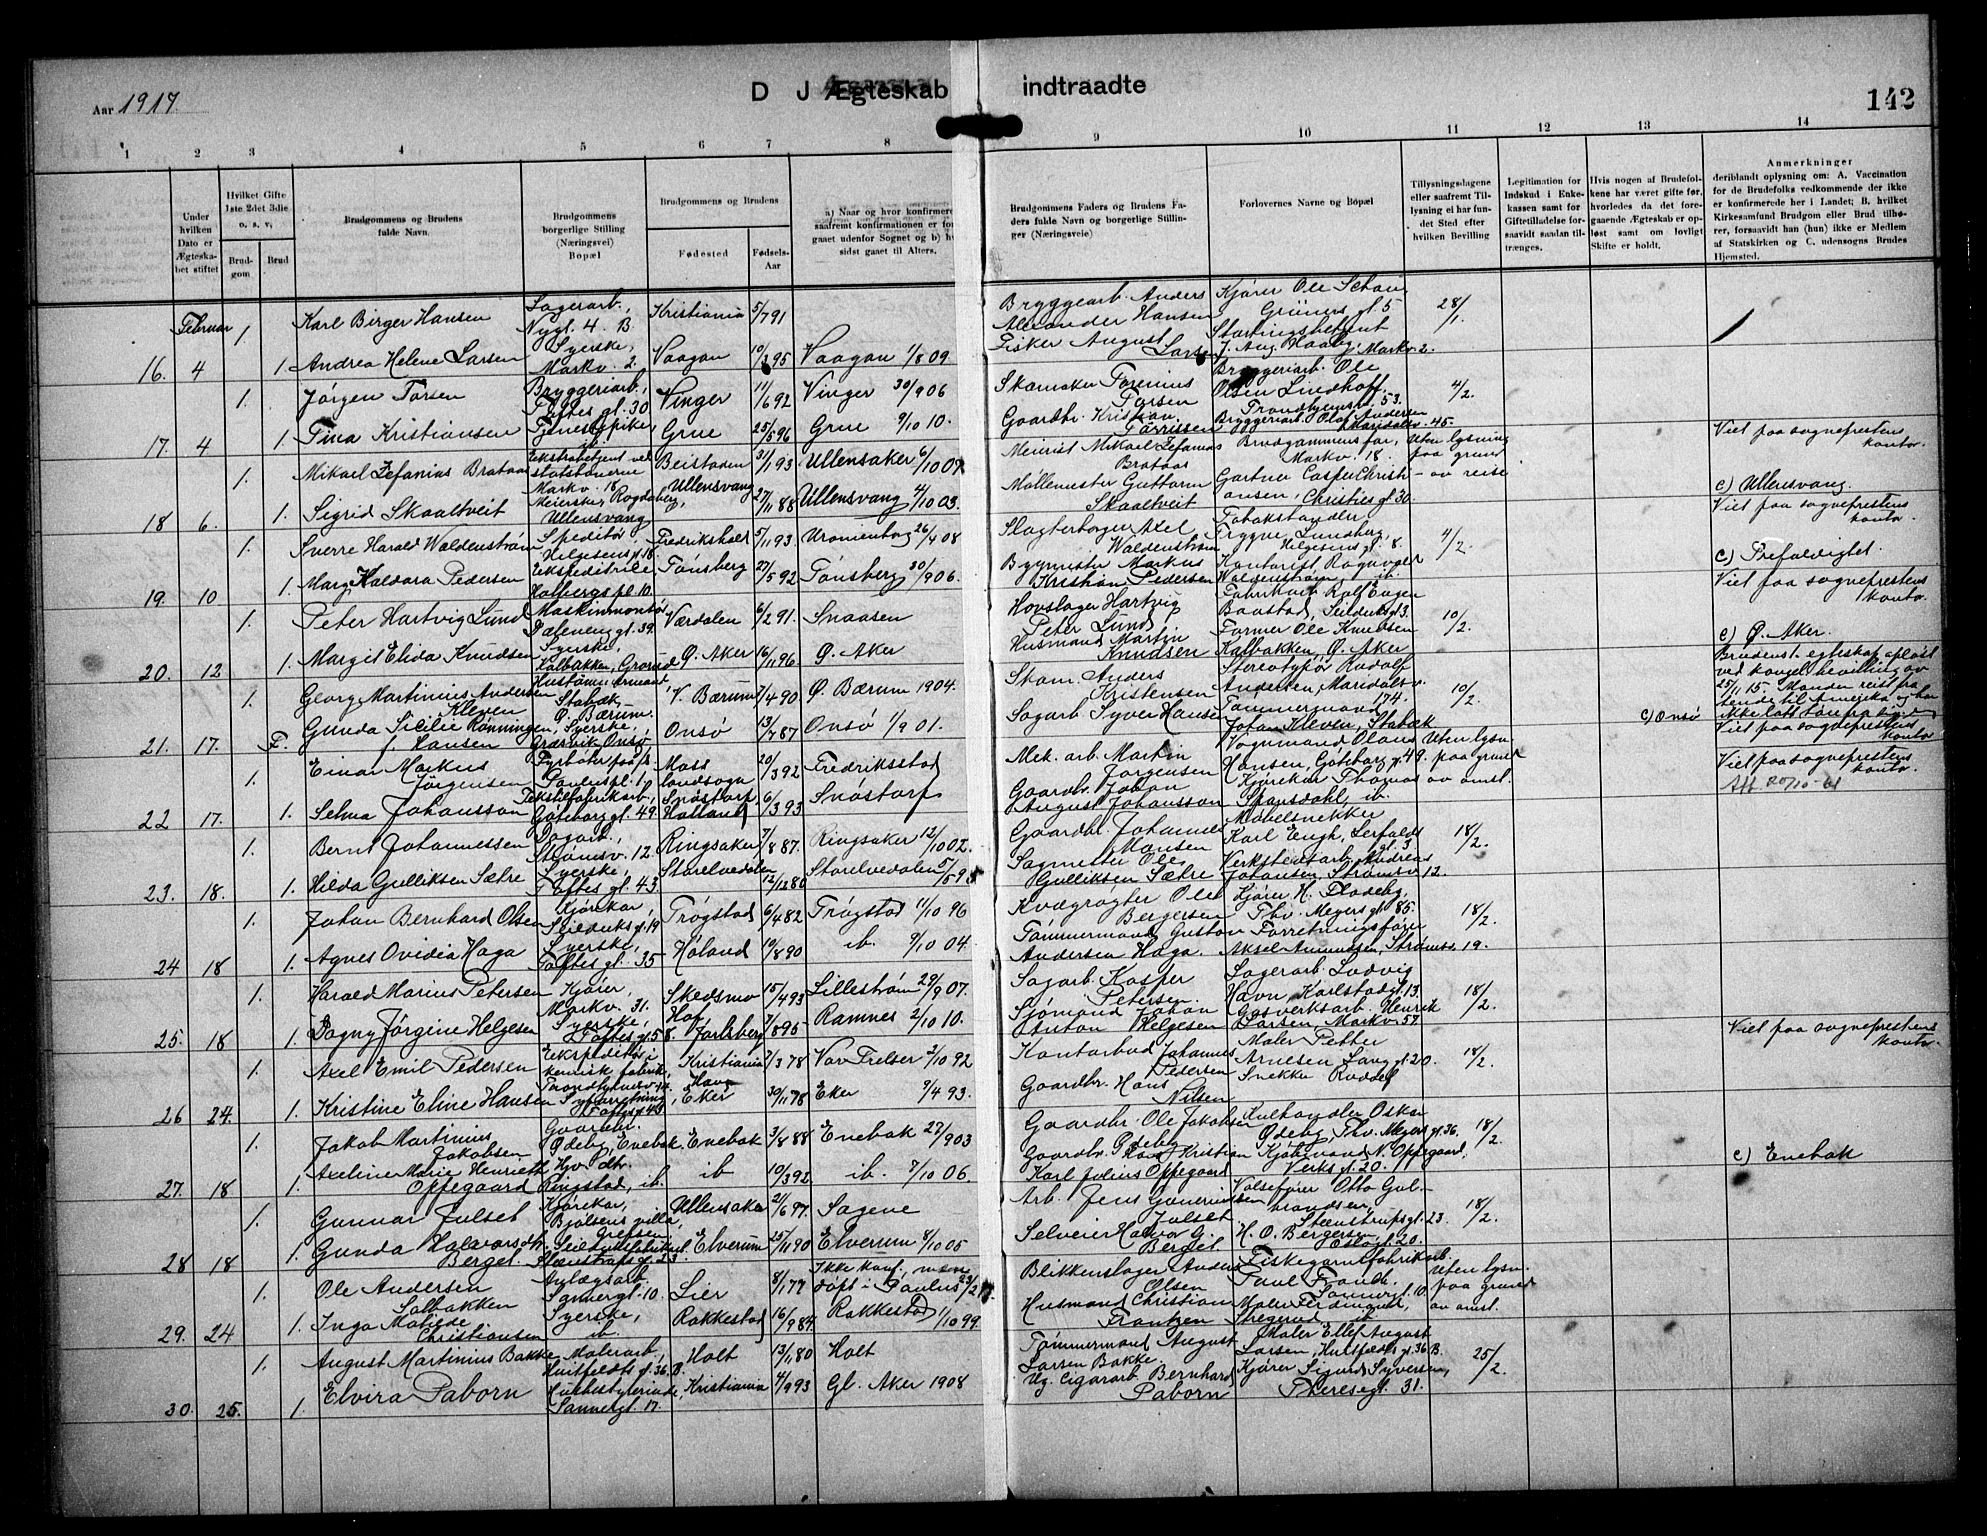 Aar 1917.
D J Ægteskab indtraadte
142
1 2 3 4 5 6 7 8 9 10 11 12 13 14
Under hvilken Dato er Ægteskabet stiftet
Hvilket Gifte 1ste 2det 3die o. s. v.
Brudgom
Brud
Brudgommens og Brudens fulde Navn.
Brudgommens borgerlige Stilling (Næringsvei) Bopæl
Brudgommens og Brudens
Fødested
Fødsels-Aar
a) Naar og hvor konfirmere
saafremt konfirmationen er for
gaaet udenfor Sognet og b) h
sidst gaaet til Alters.
Brudgommens Faders og Brudens Faders fulde Navn og borgerlige Stillinger (Næringsveie)
Forlovernes Navne og Bopæl
Tillysningsdagene eller saafremt Tillysning ei har fundet Sted efter hvilken Bevilling
Legitimation for Indskud i Enkekassen samt for Giftetilladelse forsaavidt saadan tiltrænges.
Hvis nogen af Brudefolkene har været gifte før, hvorledes da det foregaaende Ægteskab er opløst samt om lovligt Skifte er holdt.
Anmerkninger
deriblandt oplysning om: A. Vaccination for de Brudefolks vedkommende der ikke er konfirmerede her i Landet; B. hvilket Kirkesamfund Brudgom eller Brud tilhører, forsaavidt han (hun) ikke er Medlem af Statskirken og C. udensogns Brudes Hjemsted.
Februar 1. Karl Birger Hansen Lagerarb., Nygt. 4. B Kristiania 5/7 91 Bryggearb. Anders Alexander Hansen Kjører Ole Schau, Grüners gt. 5 28/1.
16. 4 1. Andrea Helene Larsen Syerske, Markv. 2 Vaagan 10/3 95 Vaagan 1/8 09 Fisker August Larsen J. Aug. Haaby, Markv. 2.
1. Jörgen Torsen Bryggeriarb., Toftes gt. 30 Vinger 11/6 92 Vinger 30/9 06 Skomaker Torsen Bryggeriarb. Ole Olsen Lindhoff, Trondhjemsv. 53. 4/2.
17. 4 1. Tina Kristiansen Tjenestepike, ib. Grue 25/5 96 Grue 9/10 10. Gaardbr. Kristian Bryggeriarb. Olaf Andersen Maridalsv. 45.
1. Mikael Zefanias Brataas Ekstrabetjent ved statsbanerne Markv. 18 Beistaden 31/1 93 Ullensaker 6/10 07 Mikael Zefanias Brataas Brudgommens far, Markv. 18. Uten lysning paa grund av reise Viet paa sogneprestens kontor.
18 6. 1. Sigrid Skaaltveit Ullensvang Ullensvang 27/11 88 Ullensvang 4/10 03. Møllemester Guttorm Skaaltveit Gartner Casper Christiansen, Christies gt. 30. c) Ullensvang.
1. Sverre Harald Waldenström Speditør, Helgesens gt. 18 Fredrikshald 5/11 93 Uranienborg 26/4 08 Axel Waldenström Tobakshandler Trygve Lundberg, Helgesens gt. 8. 4/2. Viet paa sogneprestens kontor.
19. 10 1. Marg. Kaldora Pedersen Ekspeditrice, Holbergs pl. 10. Tønsberg 27/5 92 Tønsberg 30/9 06. Bygmester Markus Kristian Pedersen Kontorist Waldenström, ib. c) Trefoldighet.
1. Peter Hartvig Lund Maskinmontør Værdalen 6/2 91. Snaasen Hovslager Hartvig Peter Lund Baastad, Seilduksgt. 3. 10/2. Viet paa sogneprestens kontor.
20. 12 1. Margit Elida Knudsen Syerske, Kalbakken, Grorud Ø. Aker 16/11 96 Ø. Aker Husmand Martin Knudsen Former Ole Knudsen Kalbakken, Ø. Aker c) Ø. Aker.
1. Georg Martinius Andersen Kleven Stabæk, Ø. Bærum. V. Bærum 7/4 90 Ø. Bærum 1904. Anders Kristensen Stereotypør Rudolf Andersen, Maridalsv. 174. 10/2. Brudens 1. egteskap opløst ved kongel. bevilling av 25/11 15. Manden reist fra hende til Amerika og har ikke latt høre fra sig
21. 17. F. Gunda Sicilie Rönningen f. Hansen Syerske, Græsvik, Onsø. Onsø 13/7 87 Onsø 1/9 01. Sagarb. Syver Hansen Tømmermand Johan Kleven, Stabæk c) Onsø Viet paa sogneprestens kontor
1. Einar Markus Jörgensen Fyrbøter Paulus pl. 1. Moss landsogn 20/3 92 Fredriksstad Mek. arb. Martin Jörgensen Vognmand Olaus Hansen, Göteborg gt. 49. Uten lysn. paa grund av omst. Viet paa sogneprestens kontor.
22 17. 1. Selma Johansson Tekstilfabrikarb., Göteborg gt. 49 Snöstorp Halland 6/3 93 Snöstorp Gaardbr. Johan August Johansson Kjørekar Thomas ib.
1. Bernt Johannessen Dagarb., Strømsv. 12. Ringsaker 7/8 87. Ringsaker 12/10 02. Gaardbr. Johannes Hansen Møbelsnekker Karl Engh, gt. 3 18/2.
23. 18. 1. Hilda Gulliksen Sætre Syerske, Toftes gt. 43 Storelvedalen 12/12 80 Storelvedalen Sagmester Ole Gulliksen Sætre. Verkstedarb. Andreas Johansen, Strömsv. 12.
1. Johan Bernhard Olsen Kjørekar, Seilduks gt. 19 Trøgstad 6/4 82 Trøgstad 11/10 96 Kvægrøgter Ole Bergersen Kjører H. Flodeby, Thv. Meyers gt. 85. 18/2.
24 18 1. Agnes Ovidia Haga Syerske, Toftes gt. 35 Høland 19/8 90 ib. 9/10 04. Tømmermand Gustav Andersen Haga. Forretningsfører Aksel Amundsen, Strømsv. 19.
1. Harald Marius Petersen Kjører, Markv. 31. Skedsmo 15/4 93 Lillestrøm 29/9 07. Sagarb. Kasper Petersen. Lagerarb. Ludvig Havn, Karlstadgt. 13. 18/2.
25. 18 1. Dagny Jörgine Helgesen Syerske, Toftes gt. 58. Hof Jarlsberg 7/8 95 Ramnes 2/10 10. Sjømand Johan Anton Helgesen Gasverksarb. Henrik Larsen, Markv. 57.
1. Axel Emil Pedersen Ekspeditør i kemisk fabrik, Trondhjemsv. 14. Kristiania 1/3 78 Vor Frelser 2/10 92 Kontorbud Johannes Pedersen Maler Petter Arnesen, Langgt. 20. 18/2. Viet paa sogneprestens kontor.
26 24. 1. Kristine Eline Hansen Syforretning, Toftes gt. 43 Eker 30/11 78 Eker 9/4 93. Gaardbr. Hans Nilsen Snekker
1. Jakob Martinius Jakobsen Gaardbr. Ødeby, Enebak. Enebak 3/8 88 Enebak 27/9 03 Gaardbr. Ole Jakobsen Ødeby Kulhandler Oskar Ødeby, Thv. Meyers gt. 36. 18/2.
27. 18 1. Axeline Marie Henriette Oppegaard Ringstad, ib. ib 19/3 92 ib. 7/10 06. Gaardbr. Kristian Karl Julius Oppegaard Kjøbmand N. Oppegaard, Verksgt. 20. c) Enebak
1. Gunnar Julset Kjørekar, Bjølsens villa, Grefsen Ullensaker 2/6 97. Sagene Arb. Jens Gunerius Julset Valsefører Otto Gulbrandsen, Steenstrupsgt. 23. 18/2.
28 18 1. Gunda Halvorsdtr. Berget Seilduksfabrikarb., Steenstrupsgt. 23. Elverum 25/11 90 Elverum 8/10 05 Selveier Halvor G. Berget H. O. Bergersen, Eslögt. 20.
1. Ole Andersen Solbakken Anlægsarb. Sannergt. 10. Lier 8/1 77 Ikke konf. men døpt i Paulus Blikkenslager Anders Olsen Fiskegarnfabrikarb. Paul Sannergt. 10 Uten lysn. paa grund av omst.
29. 24 1. Inga Matilde Christiansen Syerske, ib. Rakkestad 16/9 84. Rakkestad 1/10 99. Husmand Christian Frantzen Maler ib
1. August Martinius Bakke Malerarb., Huitfeldts gt. 36 B. Holt 13/1 80 Holt Tømmermand August Larsen Bakke. Maler Ellef August Larsen, Huitfeldts gt. 36 B. 25/2.
30. 25. 1. Elvira Paborn Husbestyrerinde, Sannergt. 17. Kristiania 4/9 93 Gl. Aker 1908 Cigararb. Bernhard Paborn Kjører Sigurd Syversen, Theresegt. 31.